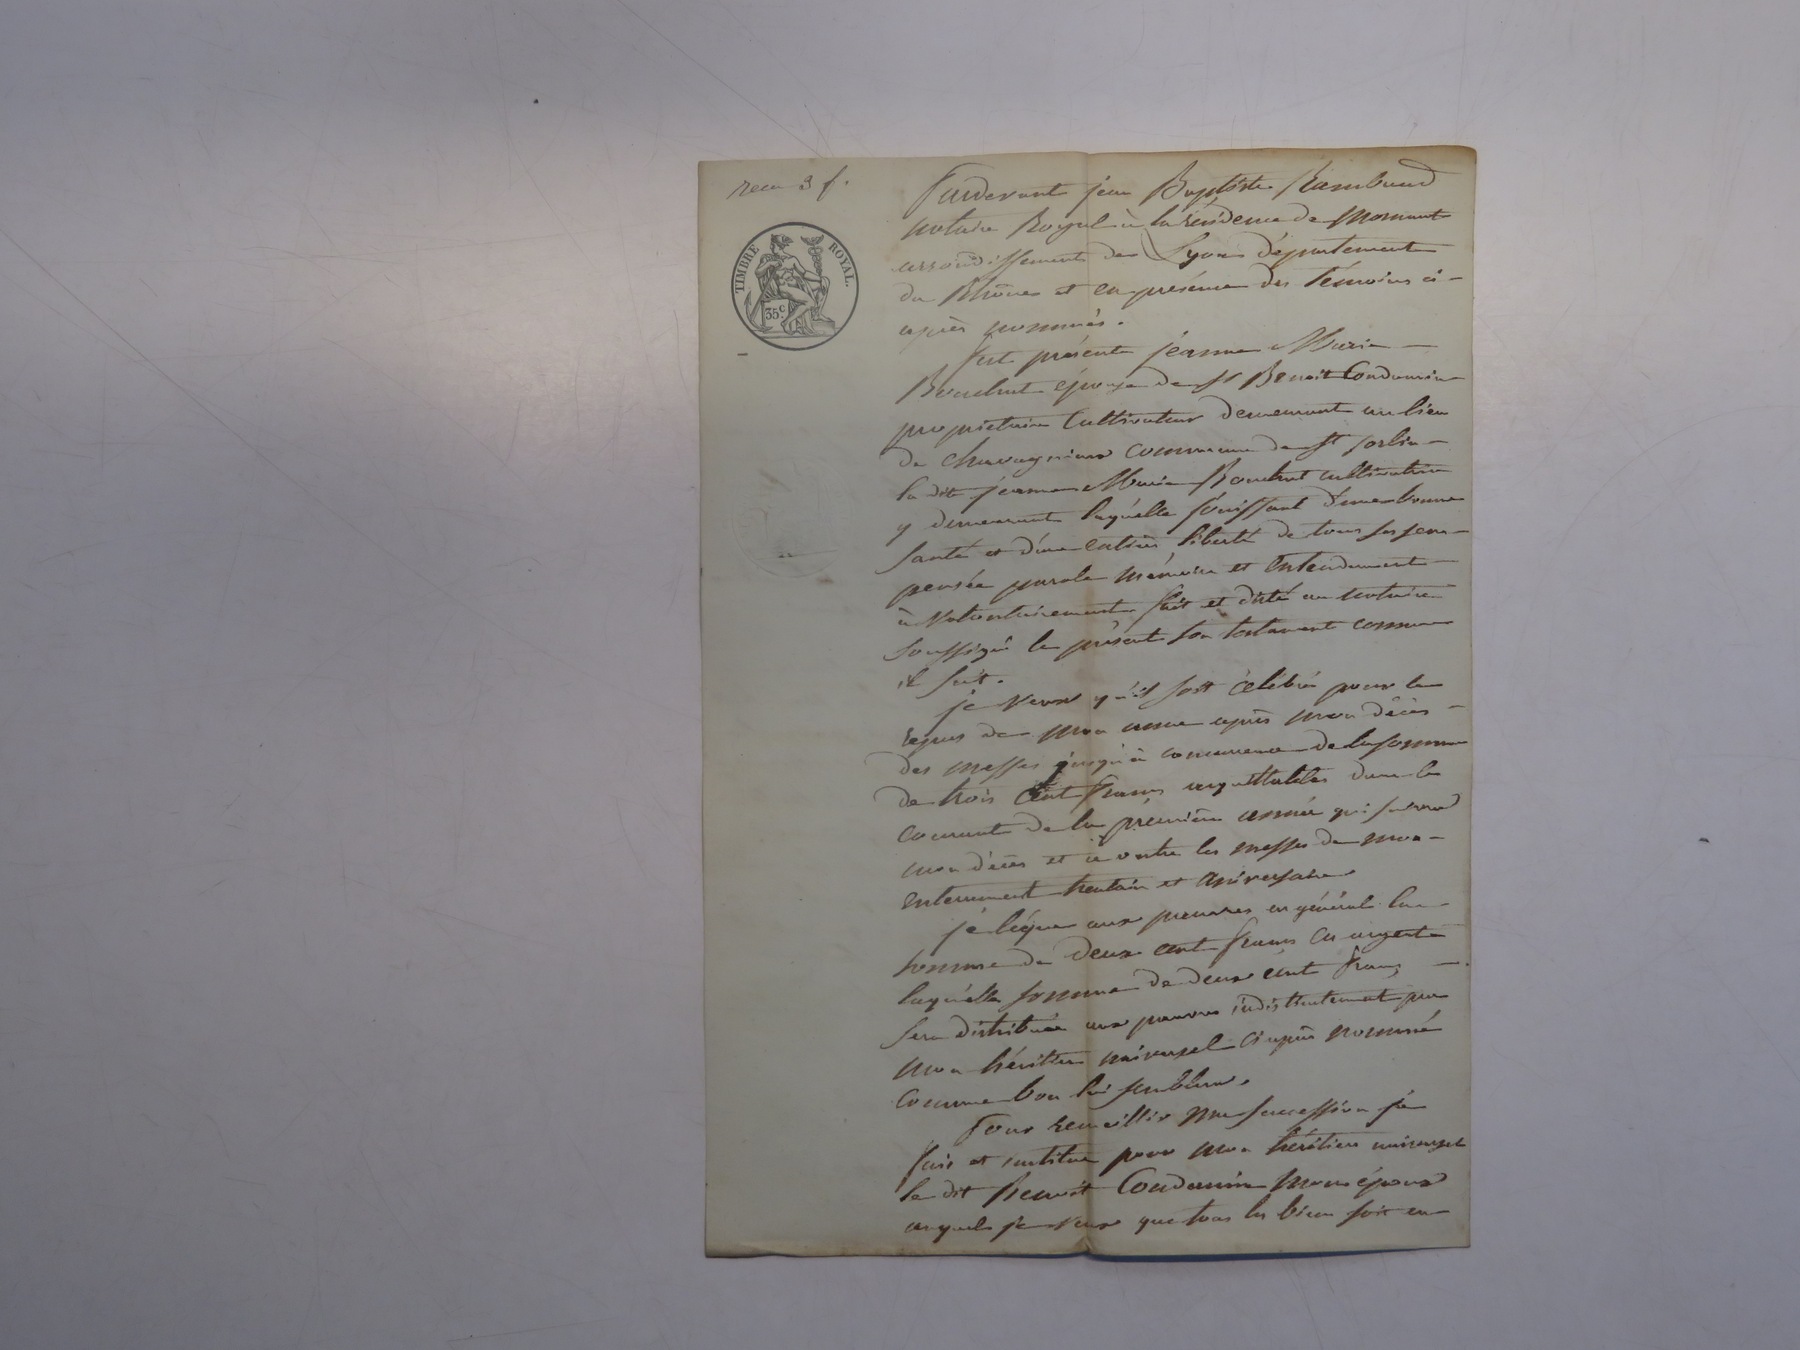 recu 3 f.
TIMBRE ROYAL.
35 c
Pardevant jean Baptiste Rambaud
notaire Royal à la résidence de Mornant
arrondissement de Lyon département
du Rhône et en présence des témoins ci-
après nommés.
fut présente jeanne Marie
Bouchut épouse de st Benoit Condamin
propriétaire Cultivateur demeurant au lieu
de chavagnieux commune de st sorlin
la dite jeanne Marie Bouchut cultivatrice
y demeurant laquelle jouissant d'une bonne
santé et d'une entière liberté de tous ses sens
pensée parole mémoire et entendement
à volontairement fait et dicté au notaire
soussigné le présent son testament comme
il suit.
je veux qu'il soit célébré pour le
repos de mon ame après mon décès
des messes jusqu'à concurrence de la somme
de trois cent francs acquittables dans le
courant de la première année qui suivra
mon décès et ce outre les messes de mon
enterrement trentain et aniversaire.
je légue aux pauvres en général la
somme de deux cent francs en argent
laquelle somme de deux cent francs
sera distribuée aux pauvres indistinctement par
mon héritier universel ci après nommé
comme bon lui semblera.
Pour recueillir ma succession je
fais et institue pour mon héritier universel
le dit Benoit Condamin mon époux
auquel je veux que tous les biens soit en